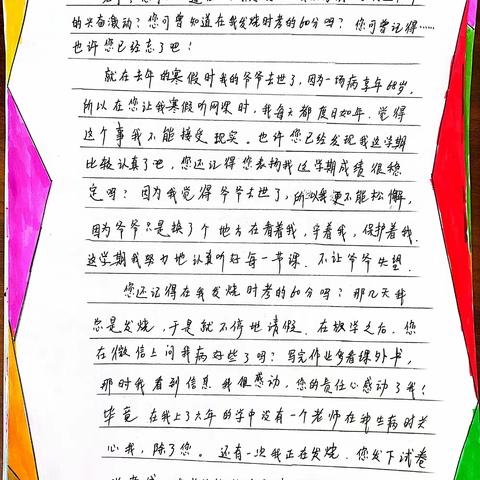 的兴奋激动？您可曾知道在我发烧时考的60分吗？您可曾记得……
也许您已经忘了吧！
就在去年的寒假时我的爷爷去世了，因为一场病享年68岁。
所以在您让我寒假听网课时，我每天都度日如年。觉得
这个事我不能接受现实。也许您已经发现我这学期
比较认真了吧，您还记得您表扬我这学期成绩很稳
定吗？因为我觉得爷爷去世了，所以我更不能松懈，
因为爷爷只是换了个地方在看着我，守着我，保护着我.
这学期我努力地认真听好每一节课.不让爷爷失望.
您还记得在我发烧时考的60分吗？那几天我
总是发烧，于是就不停地请假.在放学之后，您
在微信上问我病好些了吗？写完作业多看课外书，
那时我看到信息我很感动，您的责任心感动了我！
毕竟在我上了六年的学中没有一个老师在我生病时关
心我，除了您。还有一次我正在发烧.您发下试卷